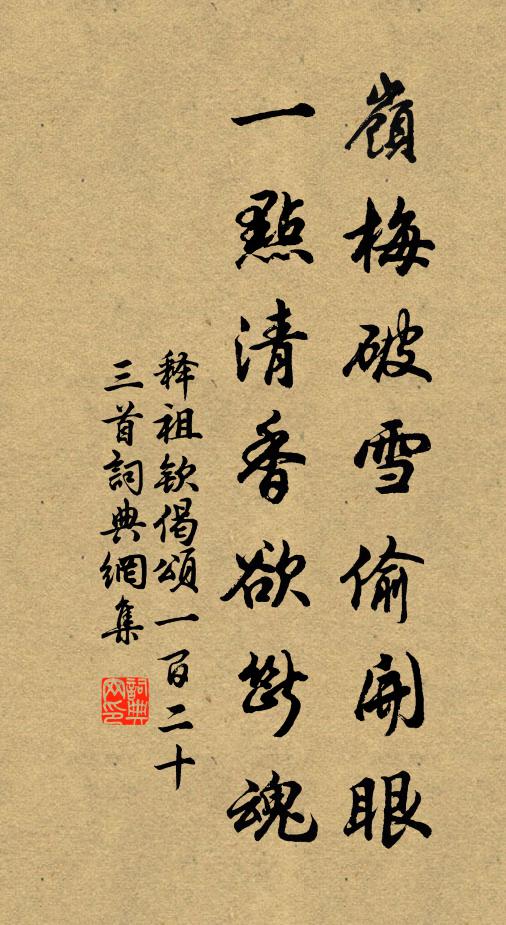 嶺梅破雪偷開眼
一點清香欲斷魂
释祖钦偈頌一百二十
三首詞典網集
詞典网印